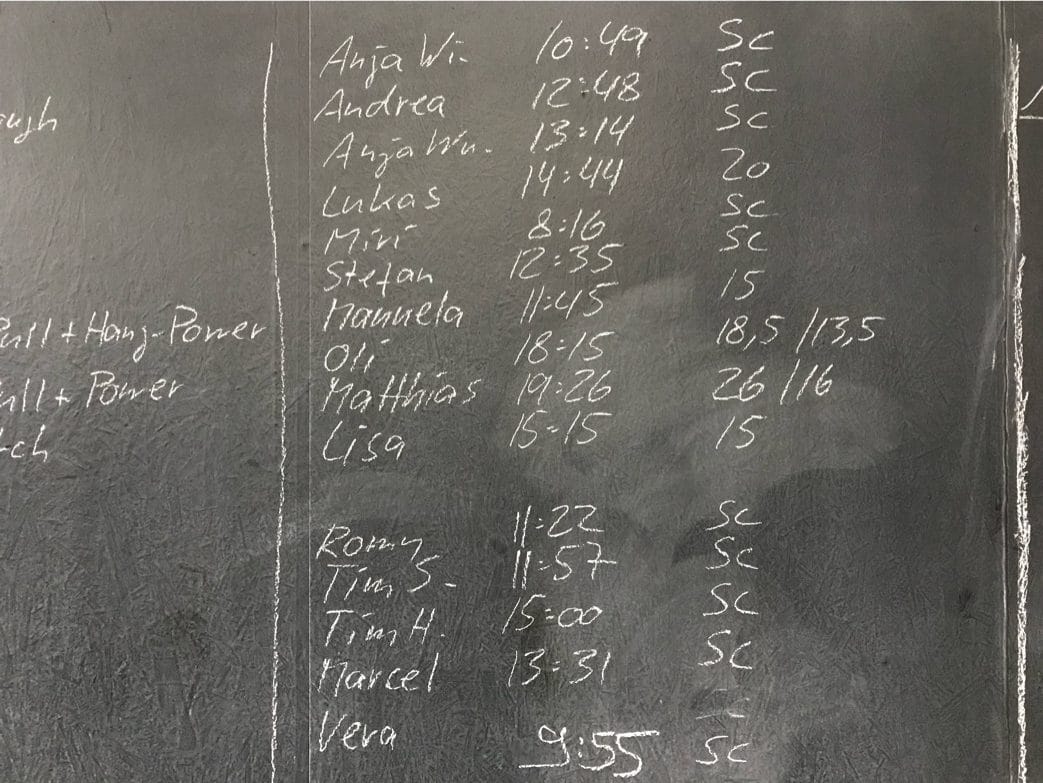 Anja Wi. 10:49 Sc
Andrea 12:48 Sc
Anja Wu. 13:14 Sc
Lukas 14:44 20
Miri 8:16 Sc
Stefan 12:35 Sc
Manuela 11:45 15
Oli 18:15 18,5 /13,5
Matthias 19:26 26 /16
Lisa 15:15 15
Romy 11:22 Sc
Tim S. 11:57 Sc
Tim H. 15:00 Sc
Marcel 13:31 Sc
Vera 9:55 Sc
+ Hang-Power
+ Power